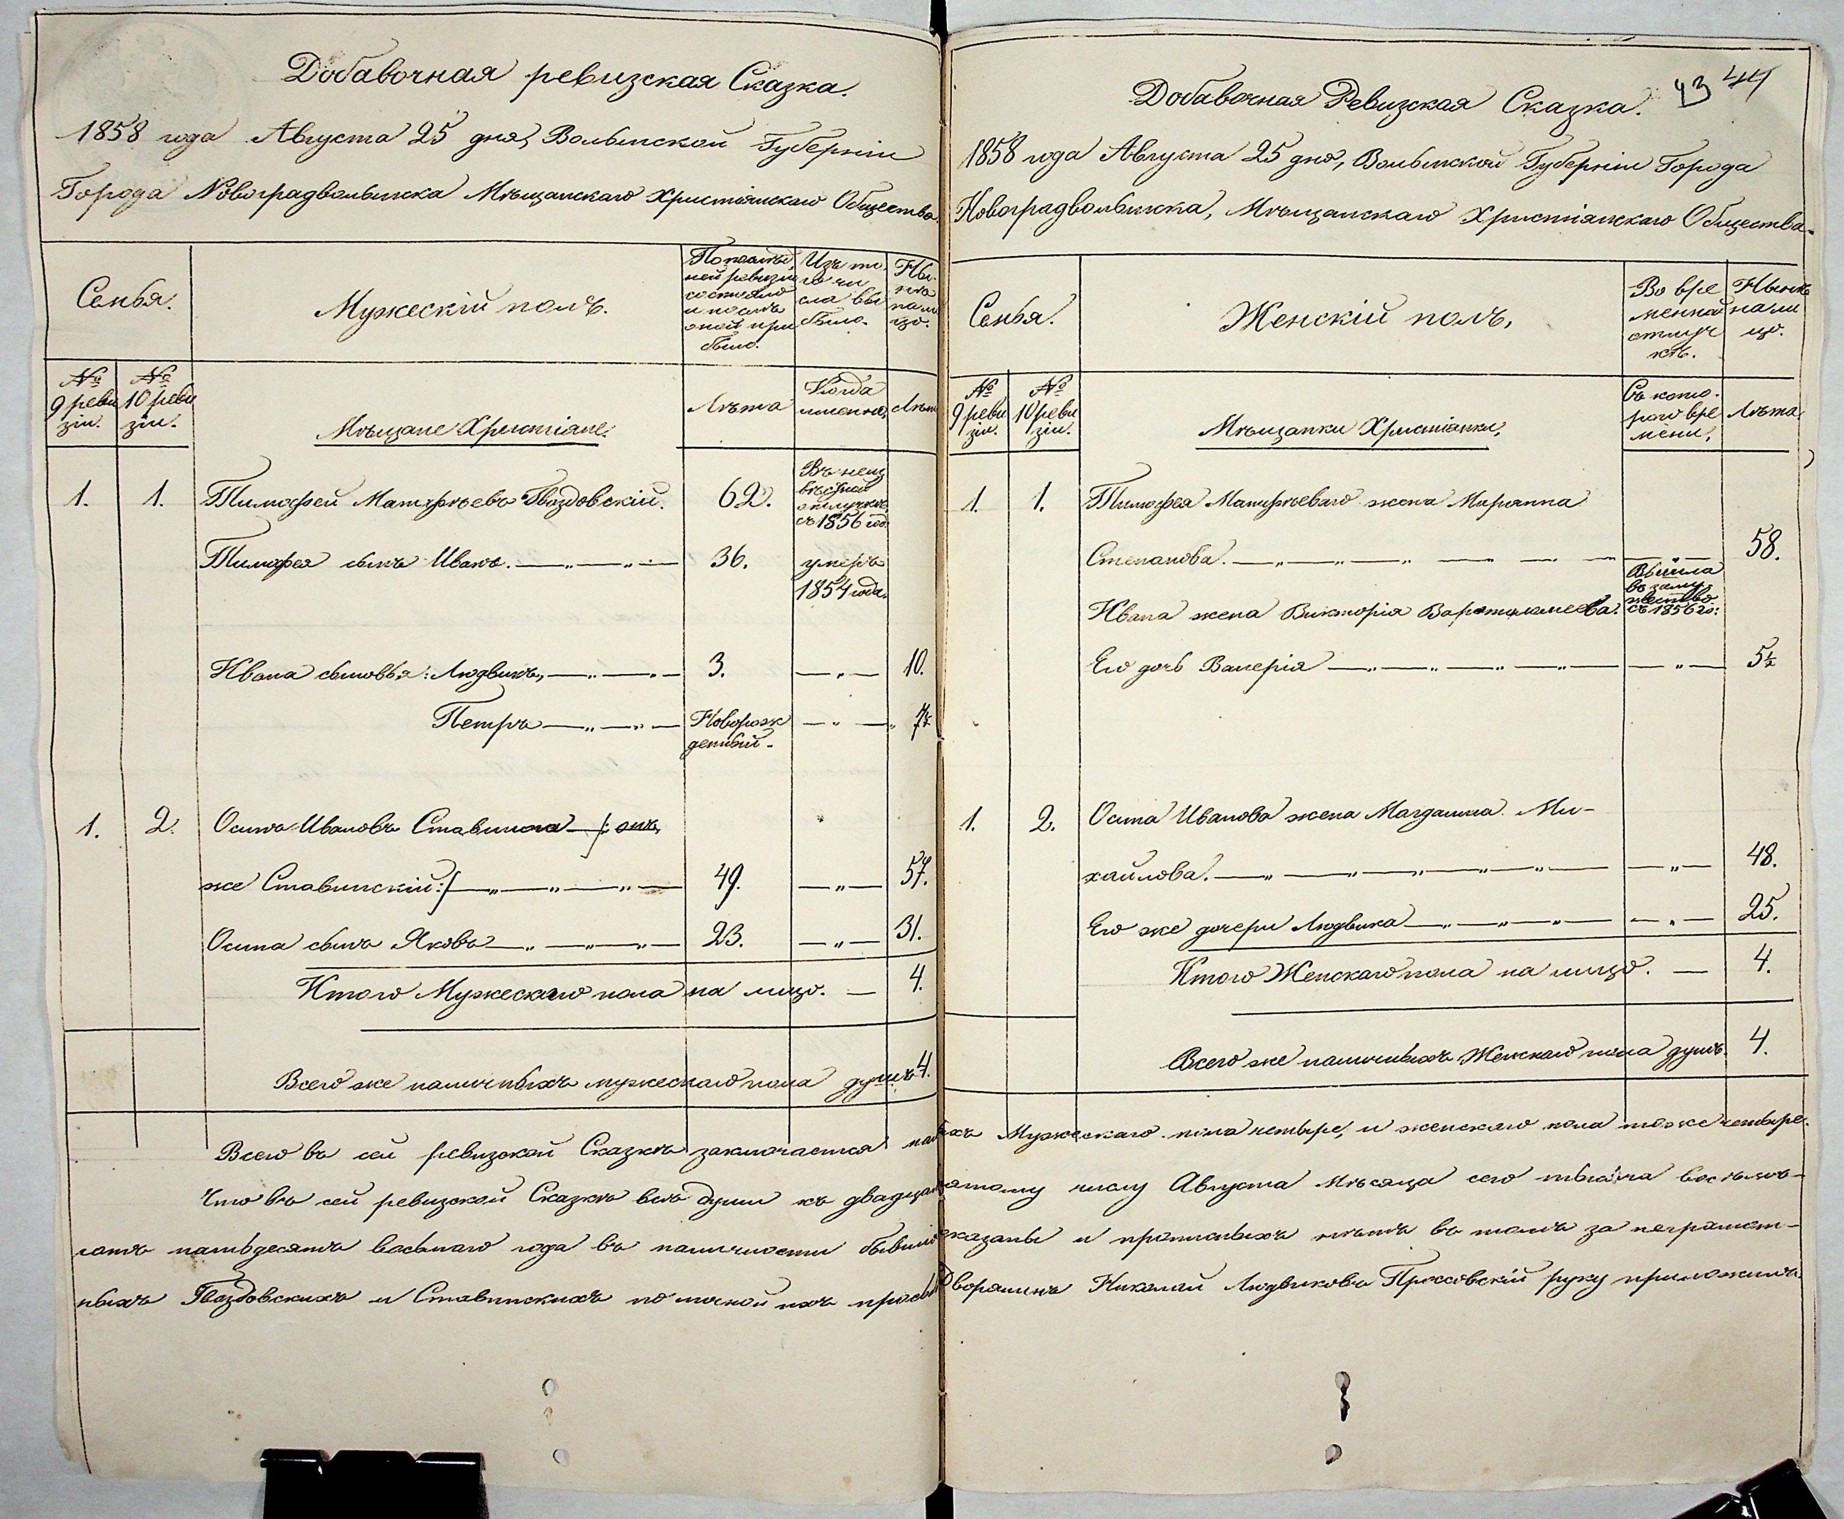 Добавочная ревизская Сказка.
1858 года Августа 25 дня, Волынской Губерніи
Города Новоградволынска Мѣщанскаго Христіянскаго Общества.
Семья.
Мужескій полъ.
По послѣд
ней ревизіи
состояло
и послѣ
оной при
было.
Изъ то
го чи
сла вы
было.
Ны-
нѣ
на ли
цо.
№
9 реви
зіи.
№
10 реви
зіи.
Мѣщане Христіане.
Лѣта
Когда
именно,
Лѣта
1. 1. Тимофей Матфѣевъ Гвоздовскій. 62. Въ неиз
вѣстной
отлучкѣ
съ 1856 год.
Тимофея сынъ Иванъ. 36. умеръ
1854 года.
Ивана сыновья: Людвикъ, 3. 10.
Петръ Новорож
денный. 7½
1. 2. Осипъ Ивановъ Ставинога /: онъ
же Ставинскій:/ 49. 57.
Осипа сынъ Яковъ 23. 31.
Итого Мужескаго пола на лицо. 4.
Всего же наличныхъ мужескаго пола душъ 4.
Добавочная Ревизская Сказка. 43 44
1858 года Августа 25 дня, Волынской Губерніи Города
Новоградволынска, Мѣщанскаго Христіянскаго Общества.
Семья.
Женскій полъ,
Во вре
менной
отлуч
кѣ.
Нынѣ
на ли
цо.
№
9 реви
зіи.
№
10 реви
зіи.
Мѣщанки Христіанки,
Съ кото-
раго вре
мени,
Лѣта.
1. 1. Тимофея Матфѣеваго жена Маріанна
Степанова. 58.
Ивана жена Викторія Вартоломеева. Вышла
въ заму
жество
съ 1856 го:
Его дочь Валерія 5½
1. 2. Осипа Иванова жена Магдалина Ми-
хайлова. 48.
Его же дочери Людвика 25.
Итого Женскаго пола на лицо. 4.
Всего же наличныхъ Женскаго пола душъ. 4.
Всего въ сей ревизской Сказкѣ заключается наличныхъ Мужескаго пола четыре, и женскаго пола тоже четыре.
Что въ сей ревизской Сказкѣ всѣ души къ двадцать пятому числу Августа Мѣсяца сего тысяча восемь-
сотъ пятьдесятъ восьмаго года въ наличности бывшіе показаны и прописныхъ нѣтъ въ томъ за неграмот-
ныхъ Гвоздовскихъ и Ставинскихъ по личной ихъ просьбѣ Дворянинъ Николай Людвиковъ руку приложилъ